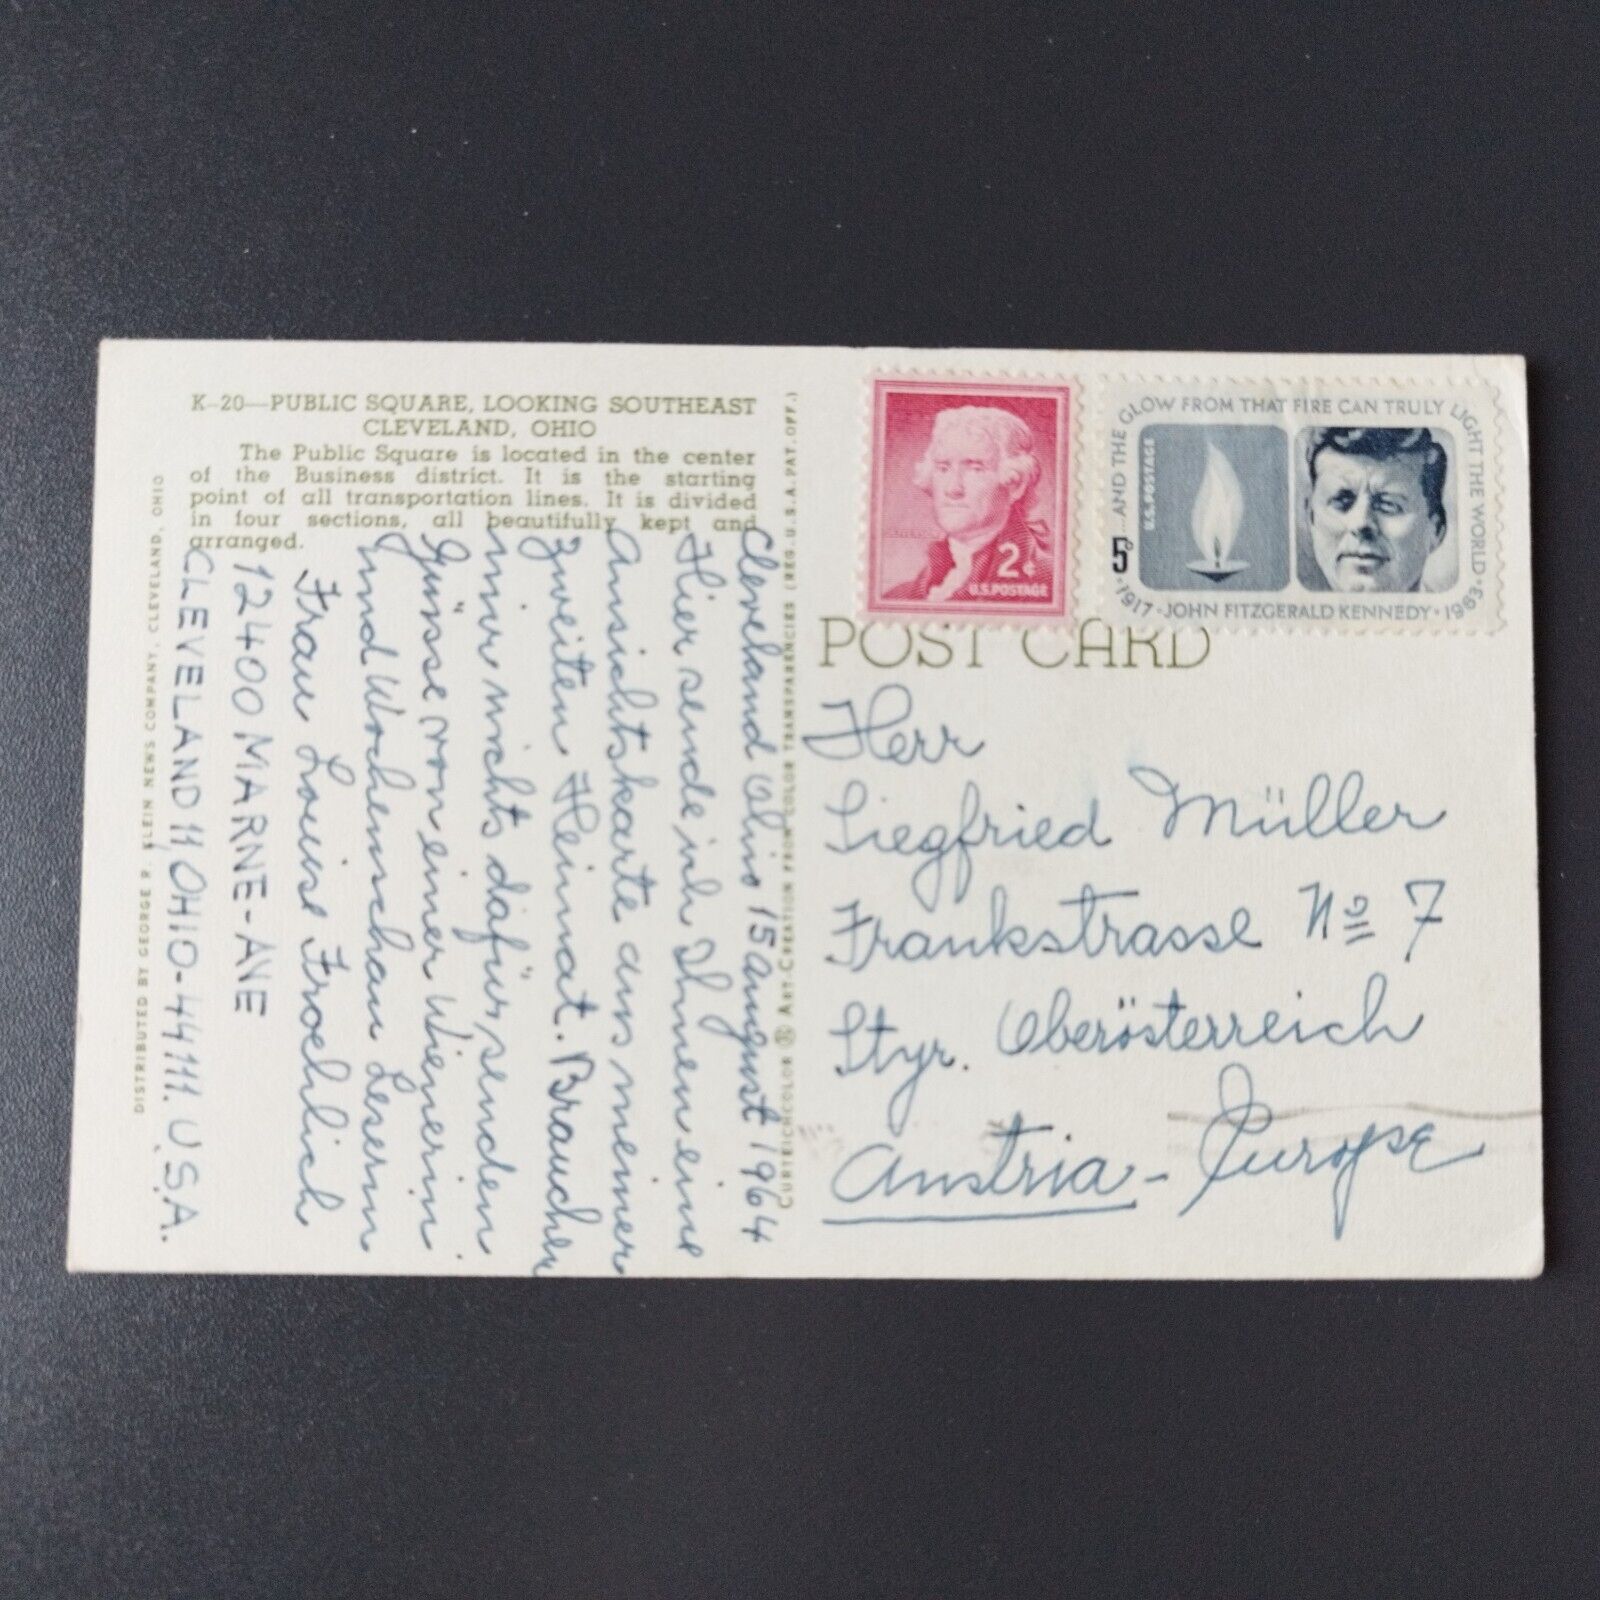 K-20—PUBLIC SQUARE, LOOKING SOUTHEAST
CLEVELAND, OHIO
The Public Square is located in the center
of the Business district. It is the starting
point of all transportation lines. It is divided
in four sections, all beautifully kept and
arranged.
DISTRIBUTED BY GEORGE R. KLEIN NEWS COMPANY, CLEVELAND, OHIO
CURTEICHCOLOR ® ART-CREATION FROM COLOR TRANSPARENCIES (REG. U.S.A. PAT. OFF.)
Cleveland Ohio 15 August 1964
Hier sende ich Ihnen eine
Ansichtskarte aus meiner
Zweiten Heimat. Brauchen
mir nichts dafür senden
Grüsse von einer Wienerin
und Wochenschau Leserin
Frau Louise Froehlich
12400 MARNE-AVE
CLEVELAND 11, OHIO-44111. U.S.A.
JEFFERSON
2¢
U.S. POSTAGE
...AND THE GLOW FROM THAT FIRE CAN TRULY LIGHT THE WORLD
U.S. POSTAGE
5¢
1917 · JOHN FITZGERALD KENNEDY · 1963
POST CARD
Herr
Siegfried Müller
Frankstrasse No 7
Styr. Oberösterreich
Austria - Europe